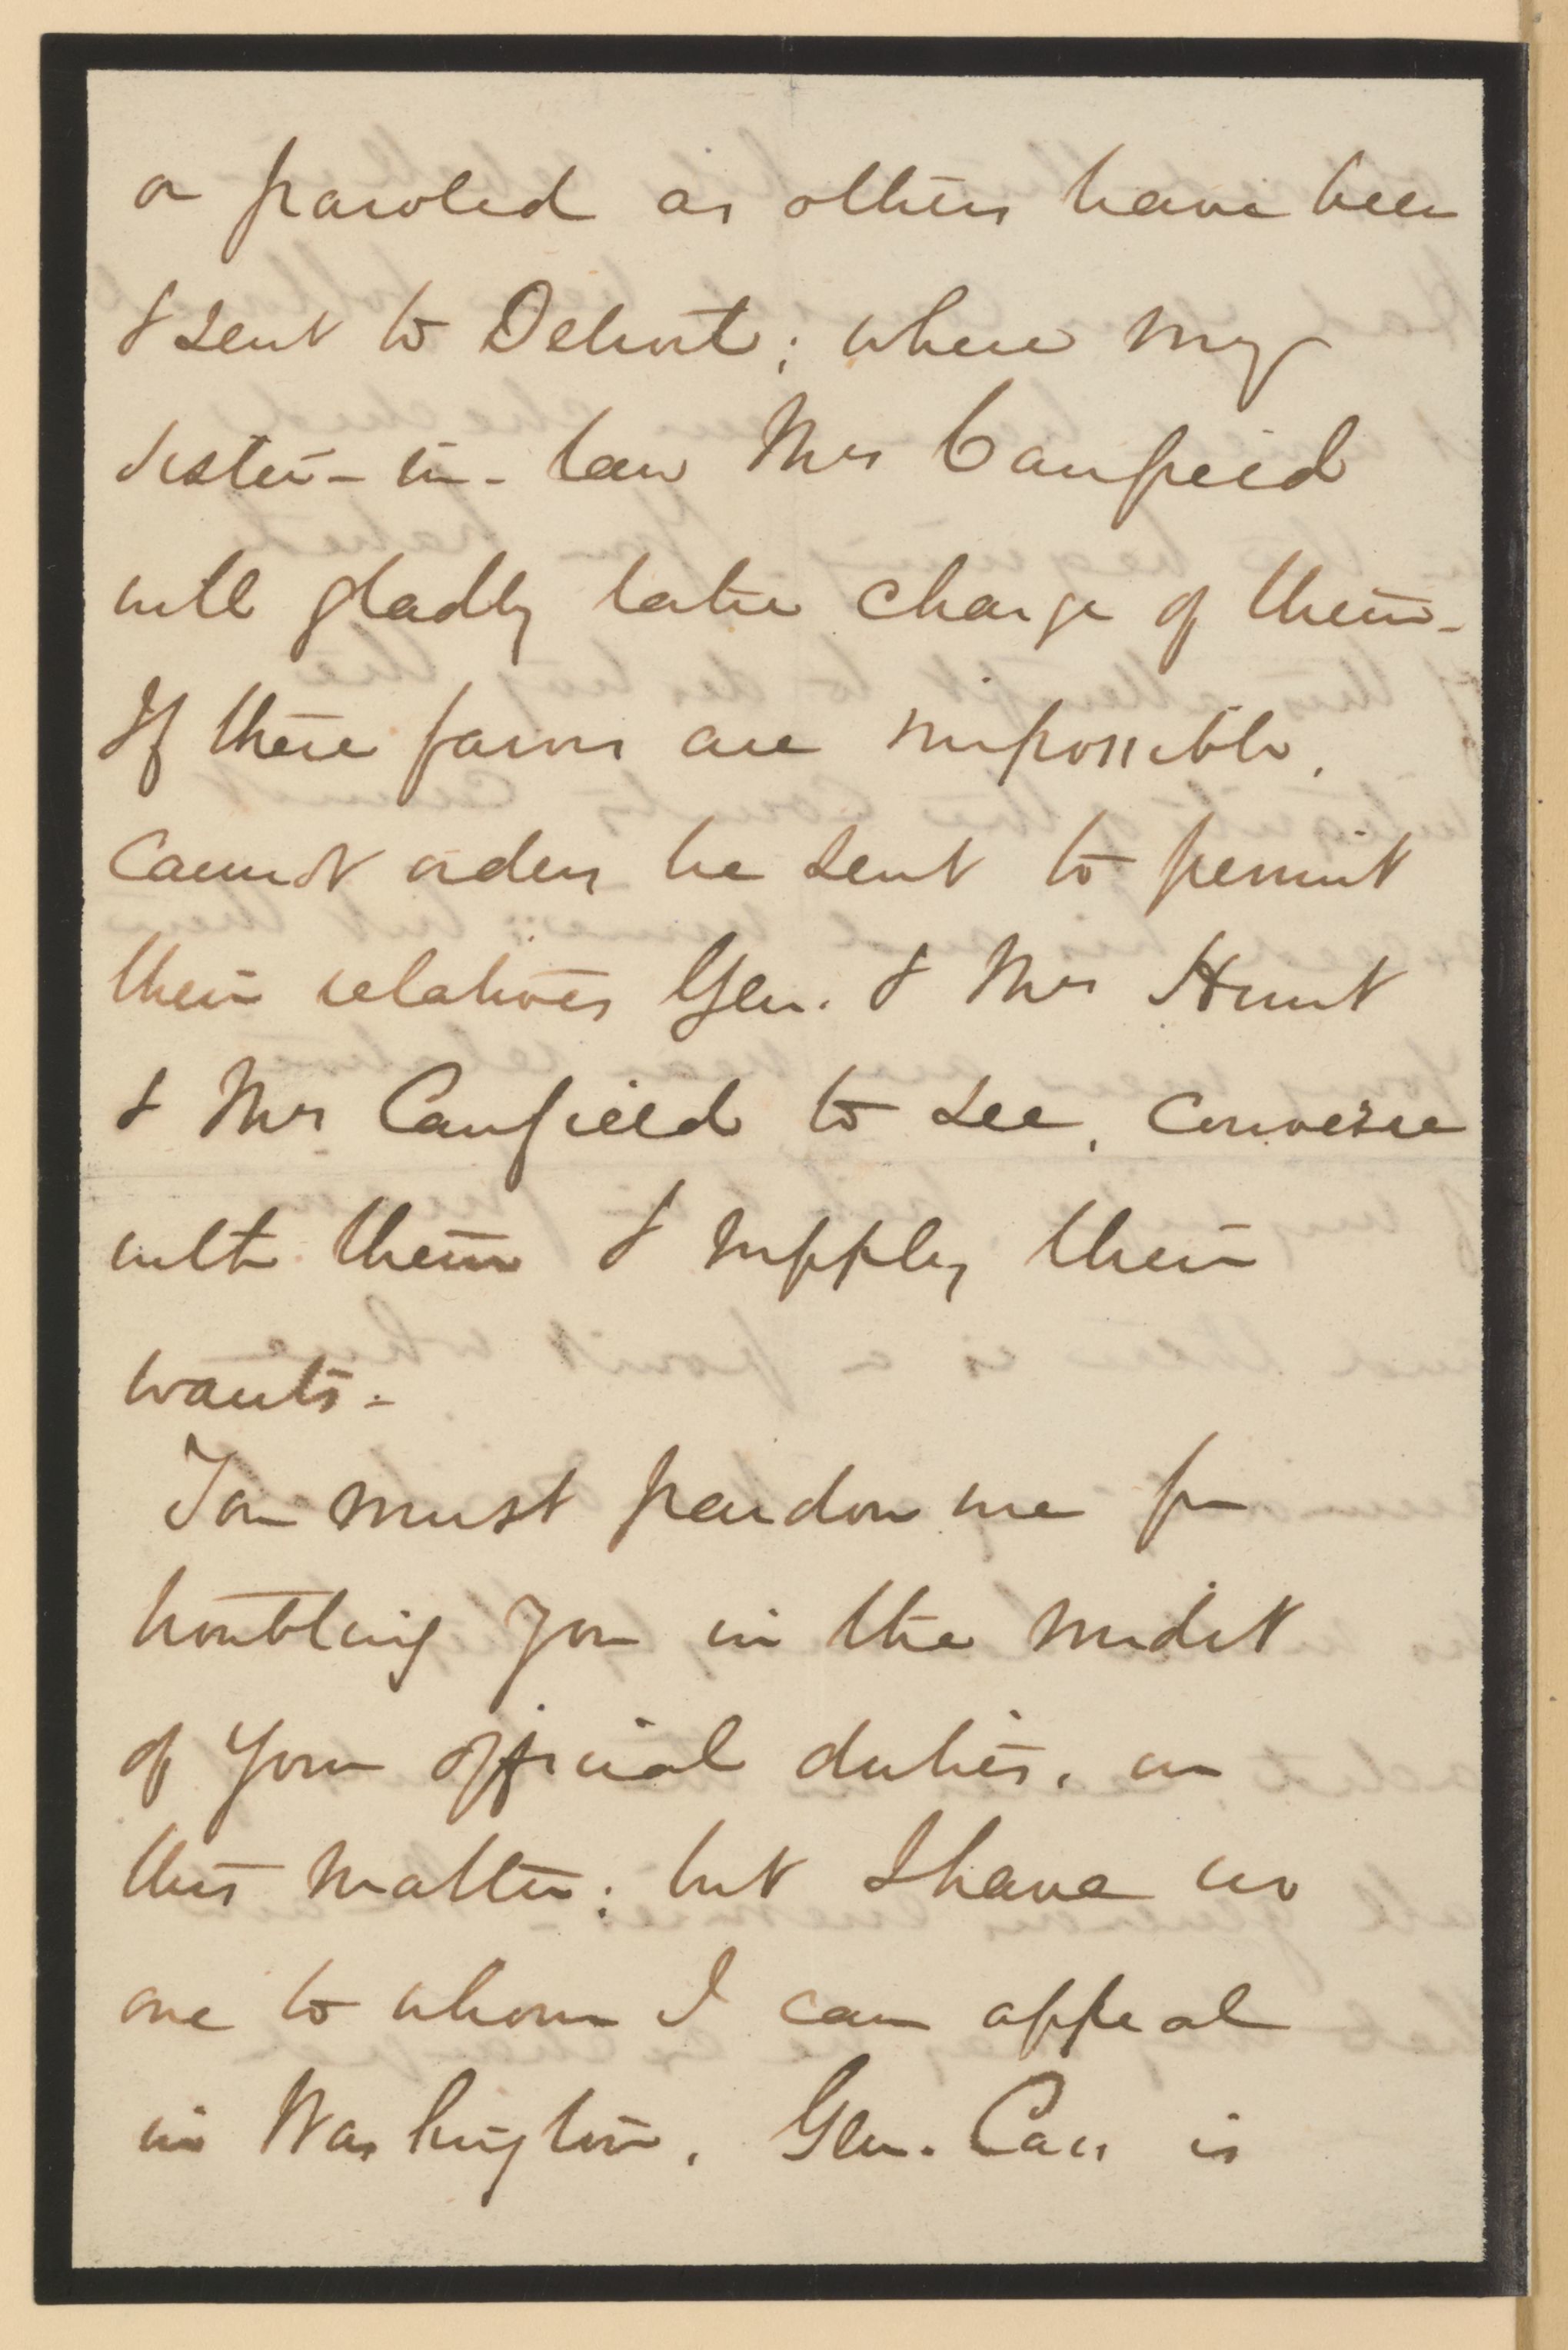 or paroled as others have been
& sent to Detroit; where my
sister-in-law Mrs Canfield
will gladly take charge of them-
If these favors are impossible,
cannot orders be sent to permit
their relatives Gen. & Mrs Hunt
& Mrs Canfield to see, converse
with them & supply their
wants-
You must pardon me for
troubling you in the midst
of your official duties, in
this matter; but I have no
one to whom I can appeal
in Washington. Gen. Cass is